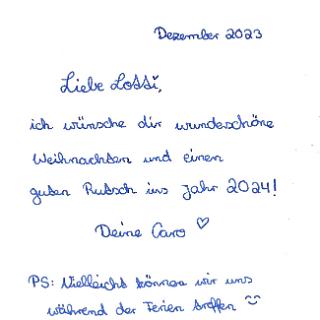 Dezember 2023
Liebe Lotti,
ich wünsche dir wundeschöne
Weihnachten und einen
guten Rutsch ins Jahr 2024!
Deine Caro ♡
PS: Vielleicht können wir uns
während der Ferien treffen ☺